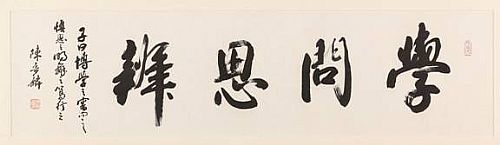 學問思辨
子曰博學之審問之
慎思之明辨之篤行之
陳